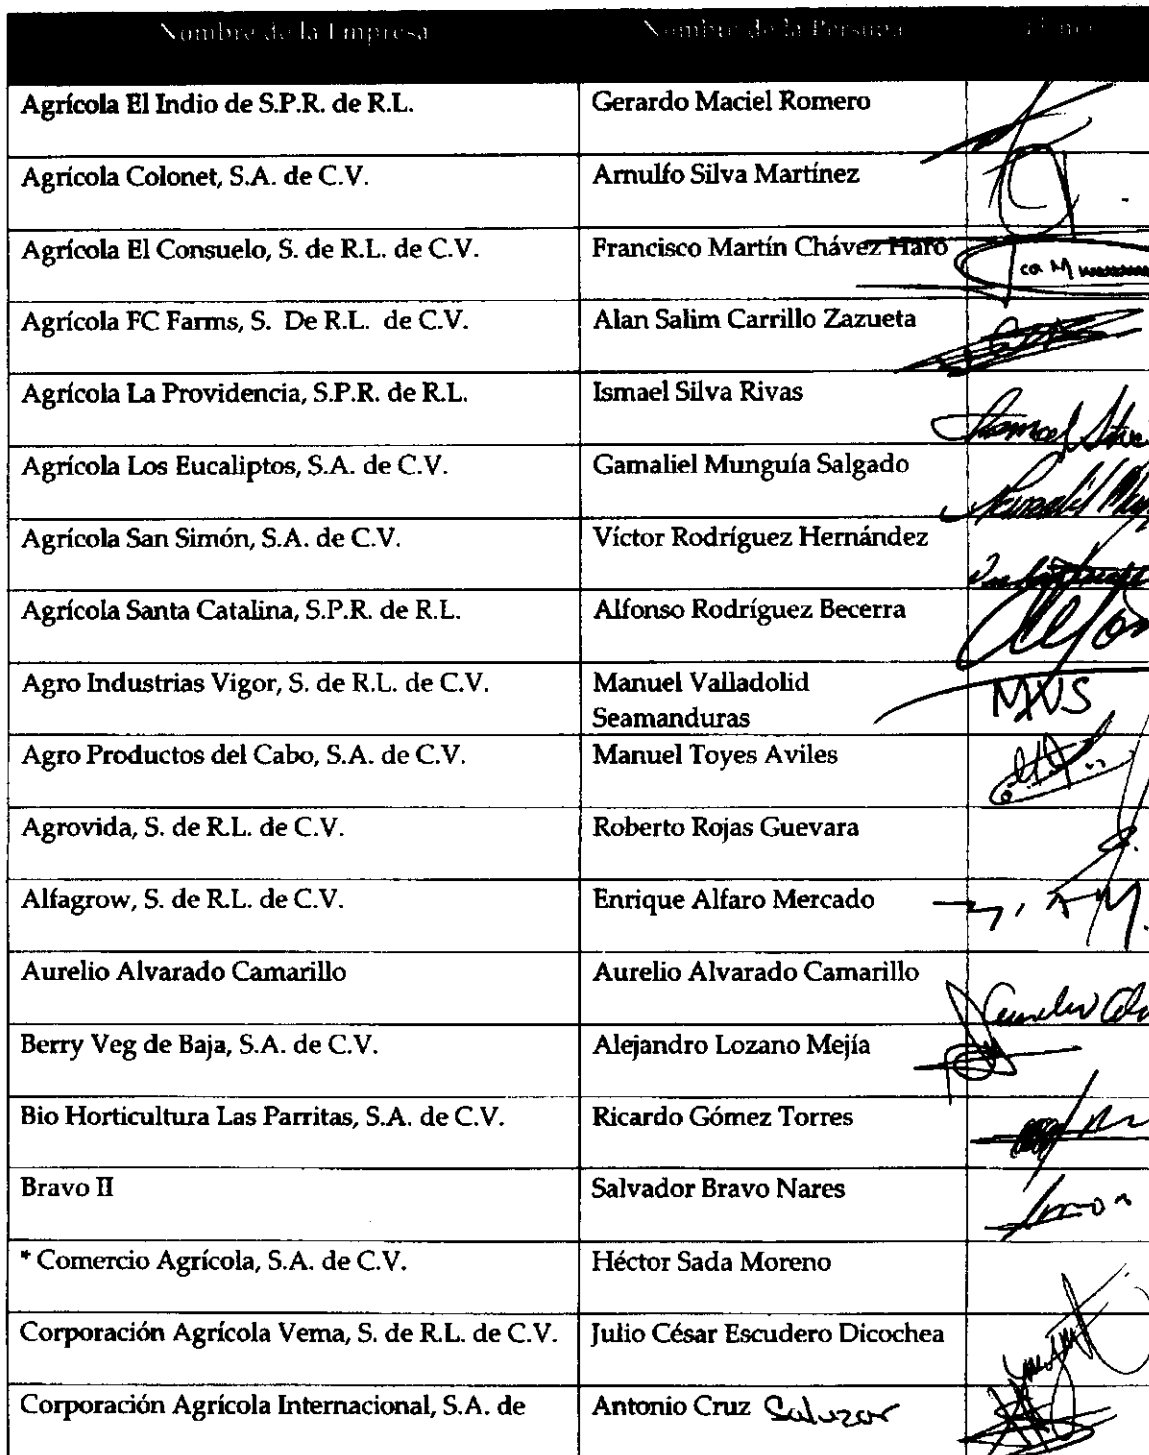 Nombre de la Empresa Nombre de la Persona
Agrícola El Indio de S.P.R. de R.L. Gerardo Maciel Romero
Agrícola Colonet, S.A. de C.V. Arnulfo Silva Martínez
Agrícola El Consuelo, S. de R.L. de C.V. Francisco Martín Chávez Haro
Agrícola FC Farms, S. De R.L. de C.V. Alan Salim Carrillo Zazueta
Agrícola La Providencia, S.P.R. de R.L. Ismael Silva Rivas
Agrícola Los Eucaliptos, S.A. de C.V. Gamaliel Munguía Salgado
Agrícola San Simón, S.A. de C.V. Víctor Rodríguez Hernández
Agrícola Santa Catalina, S.P.R. de R.L. Alfonso Rodríguez Becerra
Agro Industrias Vigor, S. de R.L. de C.V. Manuel Valladolid
Seamanduras MVS
Agro Productos del Cabo, S.A. de C.V. Manuel Toyes Aviles
Agrovida, S. de R.L. de C.V. Roberto Rojas Guevara
Alfagrow, S. de R.L. de C.V. Enrique Alfaro Mercado
Aurelio Alvarado Camarillo Aurelio Alvarado Camarillo
Berry Veg de Baja, S.A. de C.V. Alejandro Lozano Mejía
Bio Horticultura Las Parritas, S.A. de C.V. Ricardo Gómez Torres
Bravo II Salvador Bravo Nares
* Comercio Agrícola, S.A. de C.V. Héctor Sada Moreno
Corporación Agrícola Vema, S. de R.L. de C.V. Julio César Escudero Dicochea
Corporación Agrícola Internacional, S.A. de Antonio Cruz Saluzar